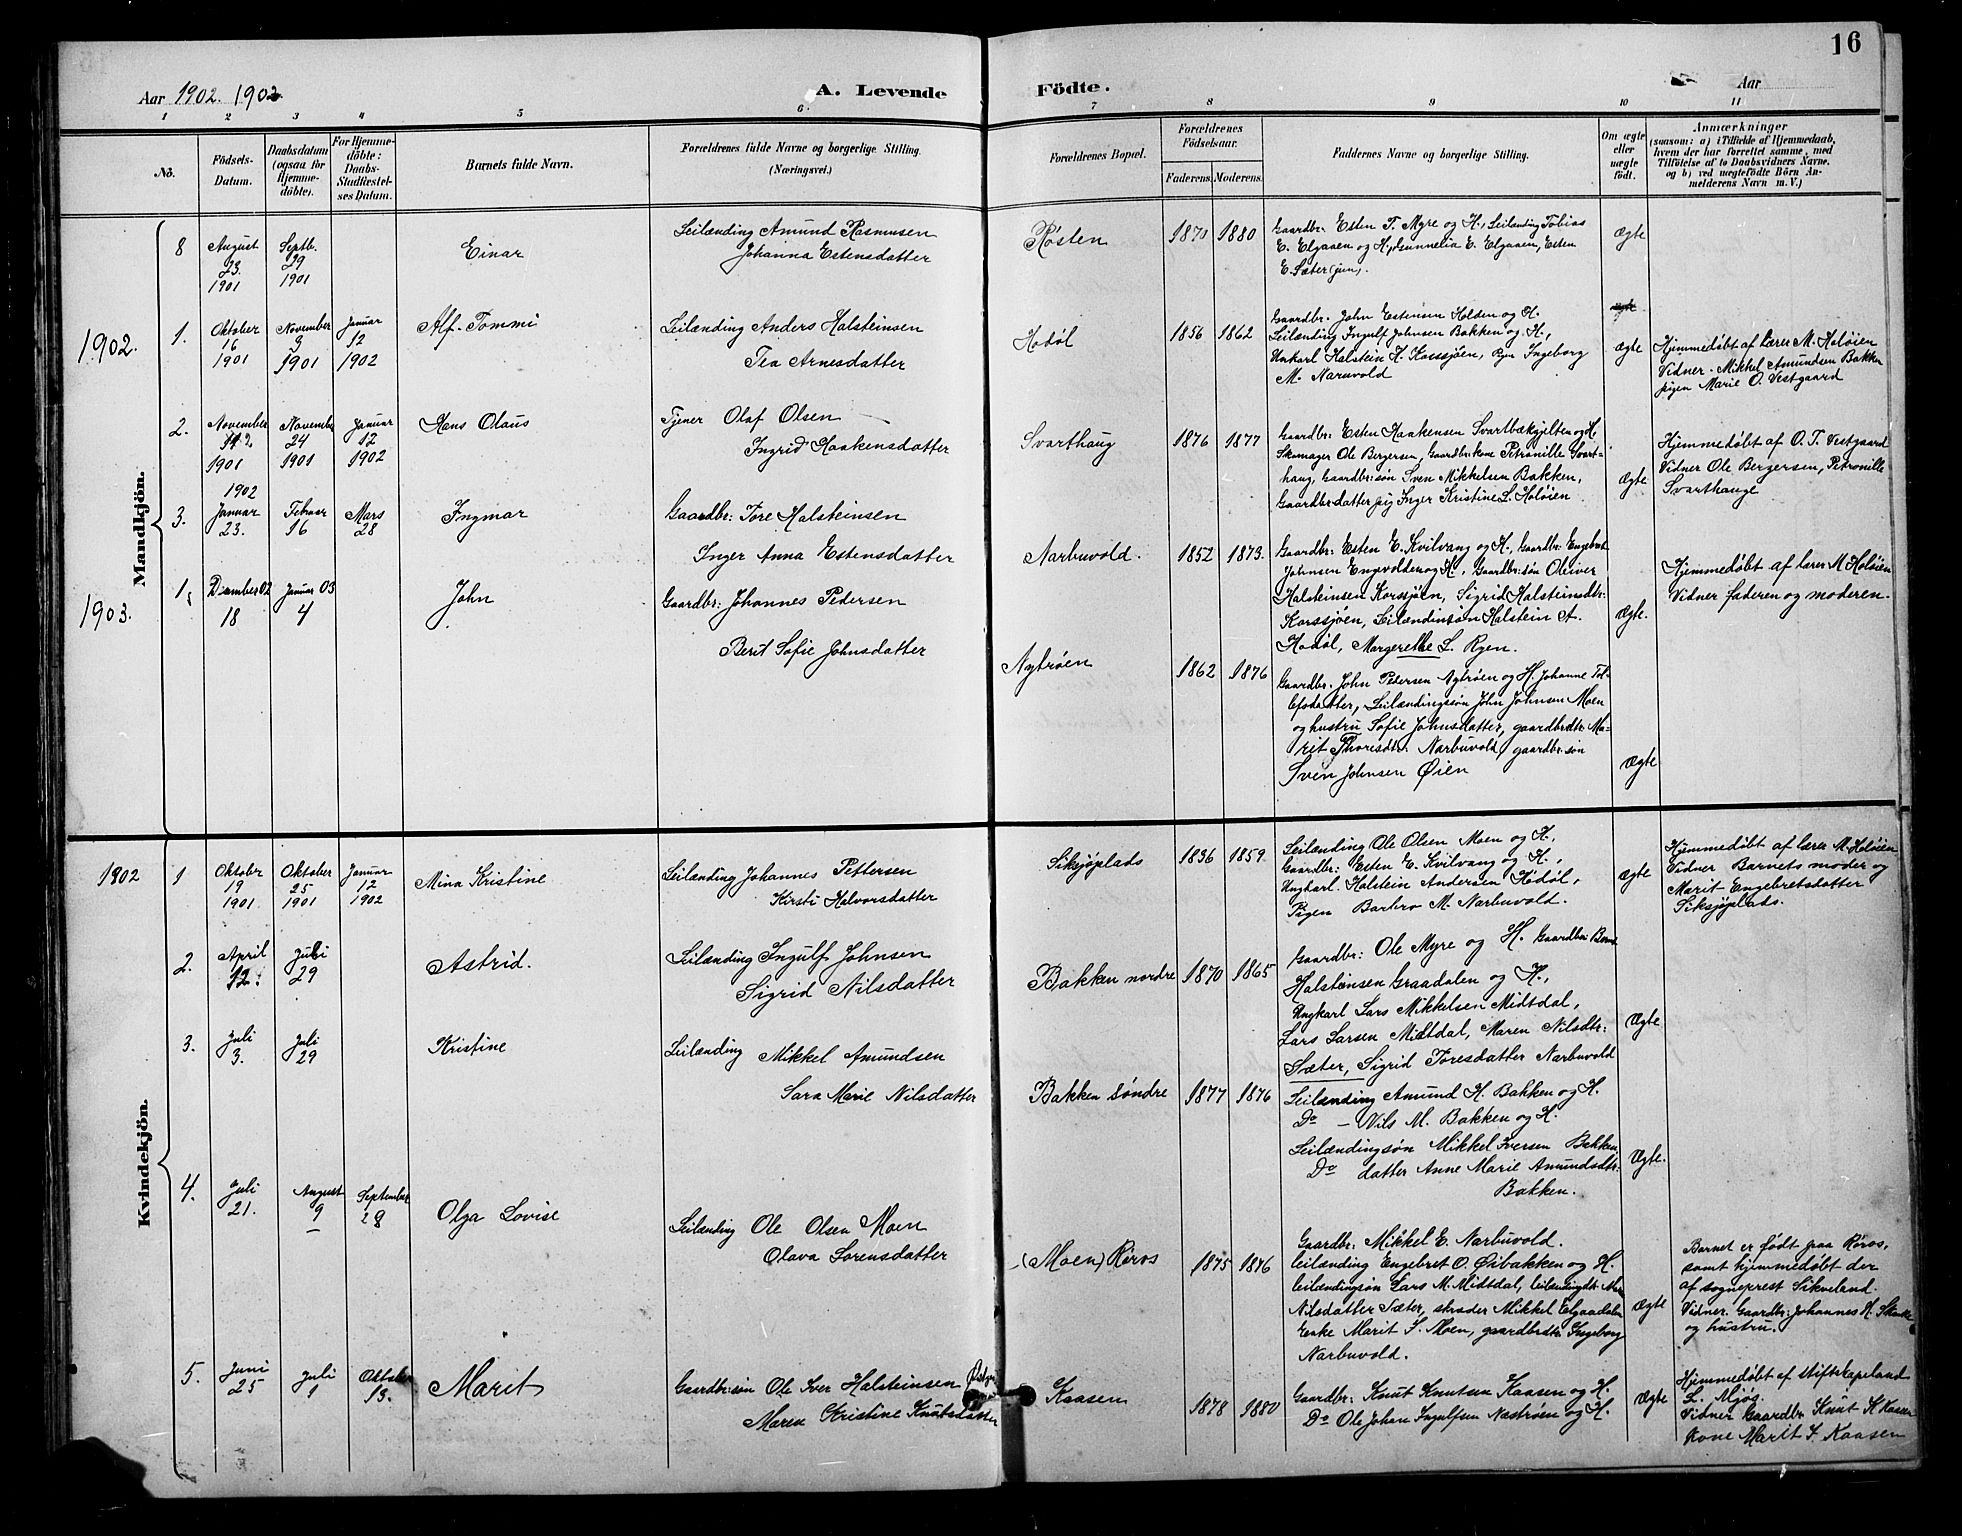 16
Aar 1902. 1903
A. Levende Födte.
Aar
1 2 3 4 5 6. 7 8 9 10 11
No.
Födsels-Datum.
Daabsdatum (ogsaa for Hjemme-döbte).
For Hjemme-döbte: Daabs-Stadfæstel-ses Datum.
Barnets fulde Navn.
Forældrenes fulde Navne og borgerlige Stilling.
(Næringsvei.)
Forældrenes Bopæl.
Forældrenes Födselsaar.
Faderens. Moderens.
Faddernes Navne og borgerlige Stilling.
Om ægte eller uægte födt.
Anmærkninger
(saasom: a) i Tilfælde af Hjemmedaab,
hvem der har forrettet samme, med
Tilföielse af to Daabsvidners Navne,
og b) ved uægtefödte Börn An-
melderens Navn m. V.)
Mandkjön.
8 August 23. 1901 Septb. 29 1901 Einar
Leilænding Amund Rasmussen
Johanna Estensdatter
Røsten 1870 1880
Gaardbr. Esten T. Myre og H., Leilænding Tobias
E. Elgaaen og H., Gunnelia E. Elgaaen, Esten
E. Sæter (jun).
ægte
1902.
1. Oktober 16 1901 November 3 1901 Januar 12 1902 Alf. Tommi
Leilænding Anders Halsteinsen
Tea Arnesdatter
Hodøl 1856 1862
Gaardbr. John Estensen Holden og H.
Leilænding Ingulf Johnsen Bakken og H.,
Unkarl Halstein H. Korssjøen, Pigen Ingeborg
M. Narbuvold
ægte
Hjemmedøbt af lærer M. Holøien
Vidner. Mikkel Amundsen Bakken
pigen Marie O. Vestgaard
2. November 1901 November 24 1901 Januar 12 1902 Hans Olaus
Tjener Olaf Olsen
Ingrid Haakensdatter
Svarthaug 1876 1877
Gaardbr: Esten Haakensen Svartbækgjelten og H.
Skomager Ole Bergersen, Gaardbr.kone Petronille Svart-
haug, Gaardbr:søn Sven Mikkelsen Bakken,
Gaardbr.datter pig Inger Kristine L. Holøien
Ægte
Hjemmedøbt af O. T. Vestgaard
Vidner Ole Bergersen, Petronille
Svarthauge
3. 1902 Januar 23. Februar 16 Mars 28 Ingmar
Gaardbr: Tore Halsteinsen
Inger Anna Estensdatter
Narbuvold. 1852 1873.
Gaardbr: Esten E. Kvilvang og H., Gaardbr: Engebret
Johnsen Engvolden og H., Gaardbr:søn Oleiver
Halsteinsen Korssjøen, Sigrid Halsteinsdtr:
Korssjøen, Leilændinsøn Halstein A.
Hodøl, Margrethe L. Ryen.
Ægte.
Hjemmedøbt af lærer M Holøien
Vidner faderen og moderen.
1903.
1. December 02 18 Januar 03 4 John
Gaardbr: Johannes Pedersen
Berit Sofie Johnsdatter
Nytrøen 1862 1876
Gaardbr. John Pedersen Nytrøen og H. Johanne Tol-
lefsdatter, Leilændingsøn John Johnsen Moen
og hustru Sofie Johnsdatter, gaardbrdtr. Ma-
rit Thoresdtr. Narbuvold, gaardbr.søn
Sven Johnsen Øien
Ægte
Kvindekjön.
1902
1 Oktobr 19 1901 Oktober 25 1901 Januar 12 1902 Mina Kristine
Leilænding Johannes Pettersen
Kirsti Halvorsdatter
Siksjøplads 1836 1859.
Leilænding Ole Olsen Moen og H.,
Gaardbr: Esten E. Kvilvang og H.,
Ungkarl. Halstein Andersen Hodøl,
Pigen Barbro M. Narbuvold.
ægte
Hjemmedøbt af lærer M. Holøien
Vidner Barnets moder og
Marit Engebretsdatter
Siksjøplads.
2. April 12. Juli 29 Astrid.
Leilænding Ingulf Johnsen
Sigrid Nilsdatter
Bakken nordre 1870 1865
Gaardbr: Ole Myre og H. Gaardbr:
Halsteinsen Graadalen og H.,
Ungkarl Lars Mikkelsen Midtdal,
Lars Larsen Midtdal, Maren Nilsdtr:
Sæter, Sigrid Toresdatter Narbuvold
Ægte
3. Juli 3. Juli 29 Kristine
Leilænding Mikkel Amundsen
Sara Marie Nilsdatter
Bakken søndre 1877 1876
Leilænding Amund H. Bakken og H.
Do — Nils M. Bakken og H.
Leilændingsøn Mikkel Iversen Bakken,
Do datter Anne Marie Amundsdtr.
Bakken.
Ægte.
4. Juli 21. August 9 September 28 Olga Lovise
Leilænding Ole Olsen Moen
Olava Sørensdatter
(Moen) Røros 1875 1876
Gaardbr: Mikkel E. Narbuvold.
Leilænding Engebret O. Øibakken og H.
Leilændingsøn Lars M. Midtdal, Leilændingdtr.
Nilsdatter Sæter, Mikkel Elgaadalen
Enke Marit S. Moen, gaardbrdtr. Ingeborg
Narbuvold.
Ægte
Barnet er født paa Røros,
samt hjemmedøbt der
af sogneprest Sikveland.
Vidner. Gaardbr: Johannes H.
og hustru.
5. Juni 25 Juli 1 Oktober 13. Marit
Gaardbr:søn Ole Iver Halsteinsen
Maren Kristine Knutsdatter
Kaasen 1878 1880
Gaardbr: Knut Knutsen Kaasen og H.
Do Ole Johan Ingulfsen Nastrøen og H.
Ægte
Hjemmedøbt af stiftskapeland
L. Mjøs.
Vidner Gaardbr Knut K Kaasen
Kone Marit I. Kaasen